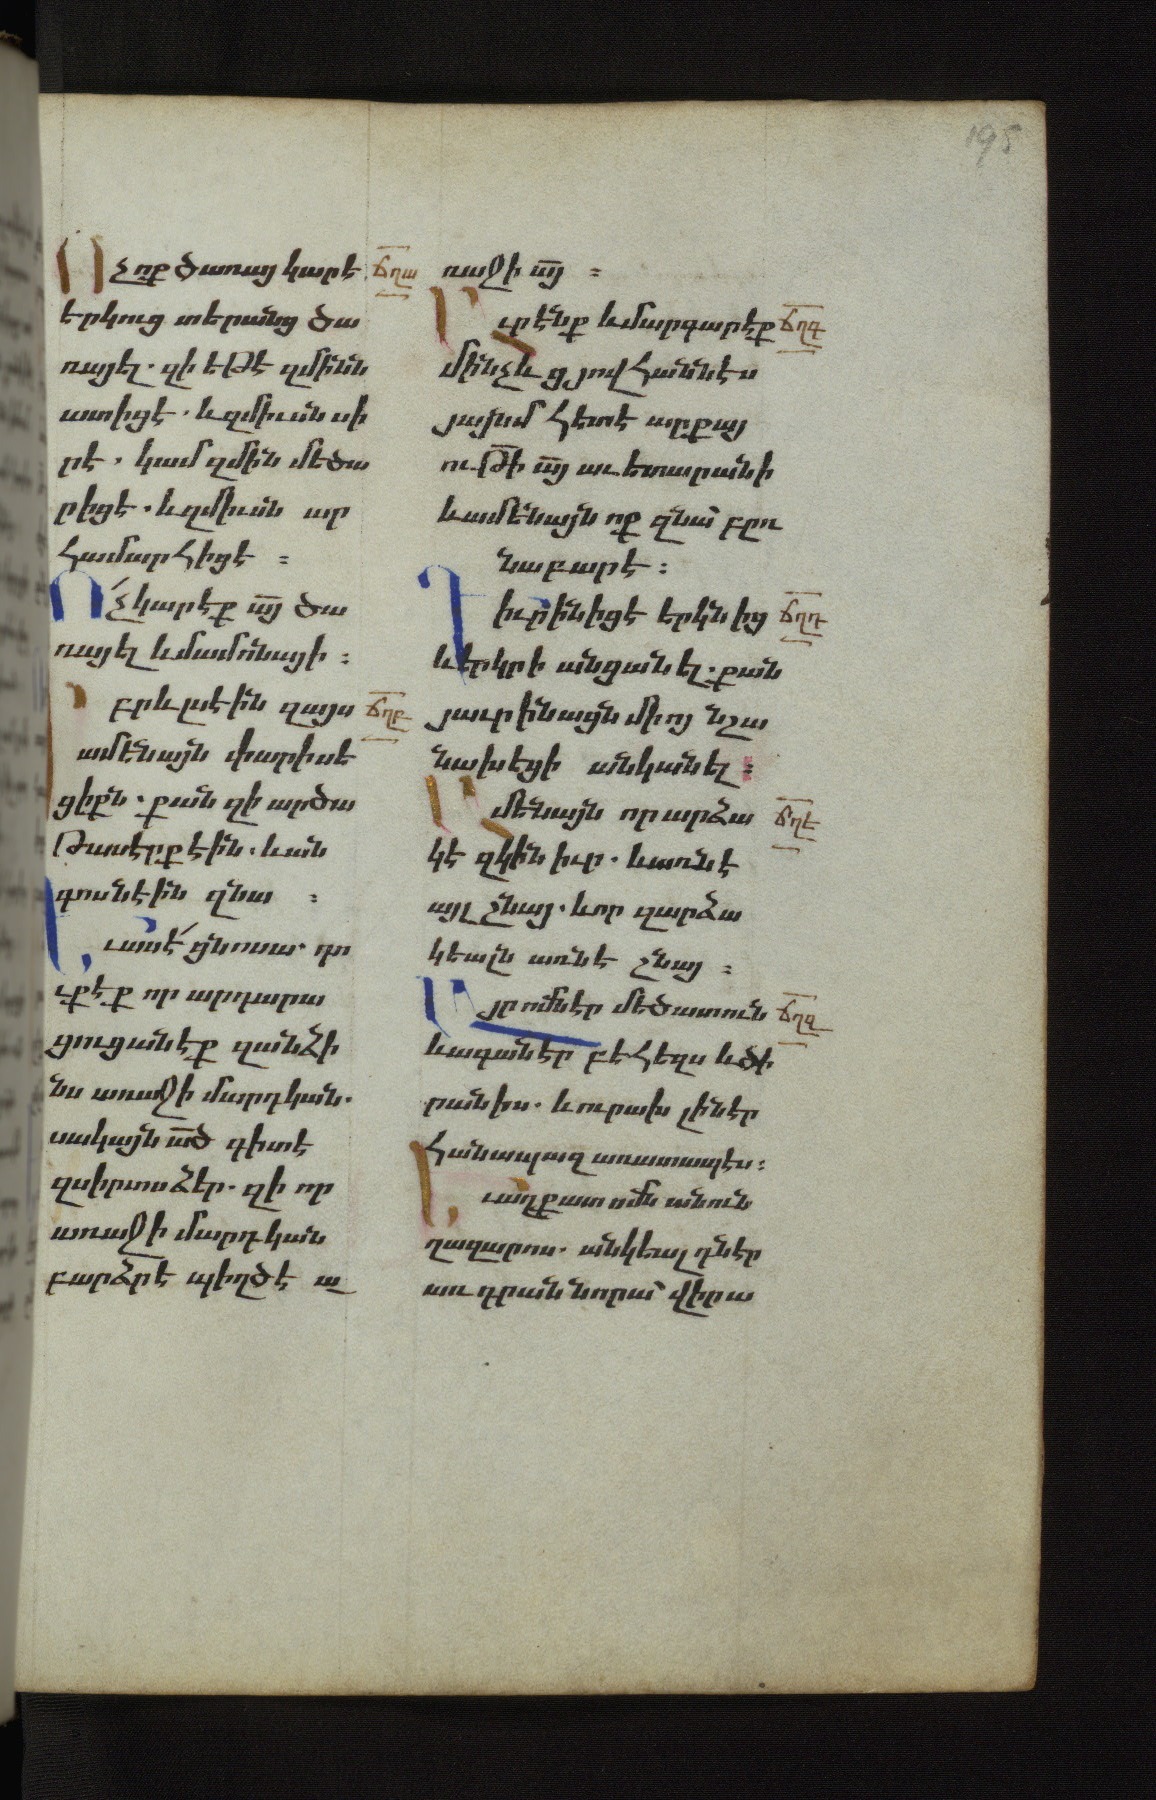 195
Ոչ ոք ծառայ կարէ ճղա
երկուց տերանց ծա
ռայել. զի եթէ զմինն
ատիցէ. և զմիւսն սի
րէ. կամ զմին մեծա
րիցէ. և զմիւսն ար
համարհիցէ ։
Ո՛չ կարէք ա՟յ ծա
ռայել և մամոնայի ։
Իբրև լսէին զայս ճղբ
ամենայն փարիսե
ցիքն. քան զի արծա
թասէրք էին. և ան
գոսնէին զնա ։
Եւ ասէ՛ ցնոսա. դո
ւք էք որ արդարա
ցուցանէք զանձի
նս առաջի մարդկան.
սակայն ա՟ծ գիտէ
զսիրտս ձեր. զի որ
առաջի մարդկան
բարձրէ պիղծէ ա
ռաջի ա՟յ ։
Աւրէնք և մարգարէք ճղգ
մինչև ց յովհաննէս
յայնմ հետէ արքայ
ութի՟ ա՟յ աւետարանի
և ամենայն ոք զնա՝ բռ
նաբարէ ։
Դիւրին իցէ երկնից ճղդ
և երկրի անցանել. քան
յաւրինացն միոյ նշա
նախեցի անկանել ։
Ամենայն որ արձա ճղե
կէ զկին իւր. և առնէ
այլ շնայ. և որ զարձա
կեալն առնէ շնայ ։
Այր ոմն էր մեծատուն ճղզ
և ագանէր բեհեզս և ծի
րանիս. և ուրախ լինէր
հանապազ առատապէս ։
Եւ աղքատ ոմն անուն
ղազարոս. անկեալ դնէր
առ դրան նորա՝ վիրա